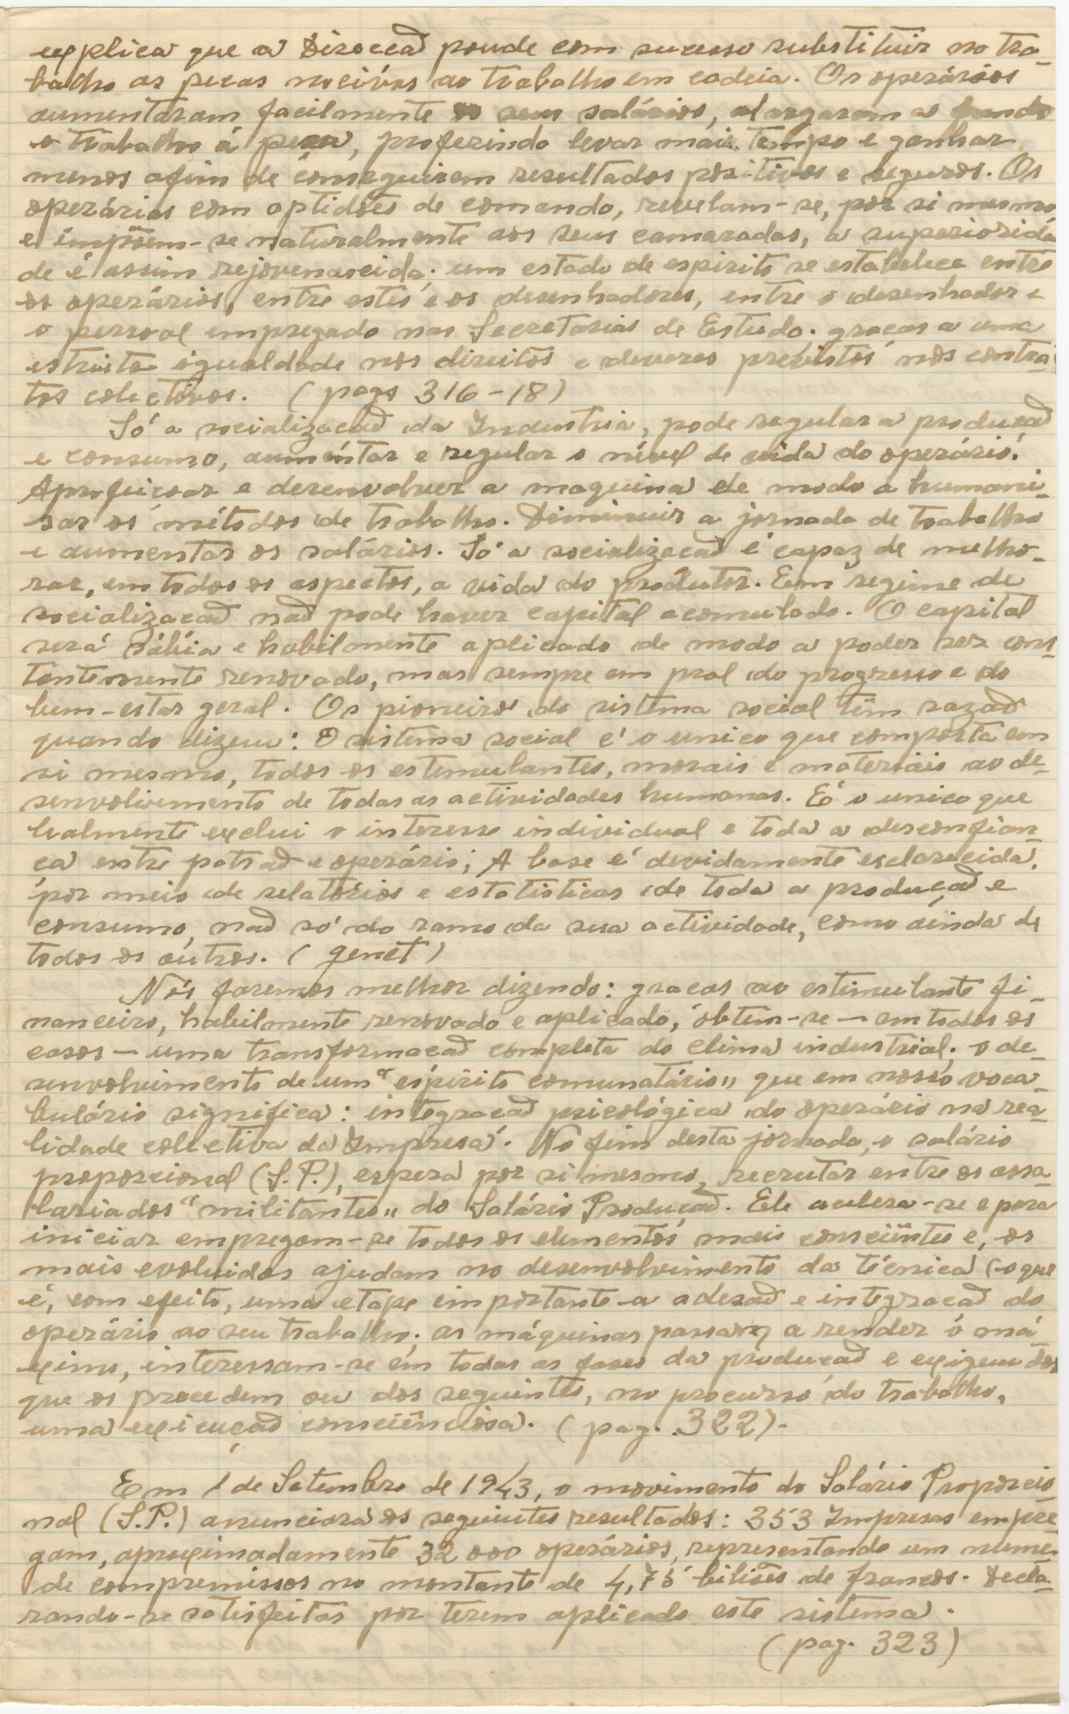 explica que a Direccaõ poude com sucesso substituir no tra-
balho as pecas nocivas ao trabalho em cadeia. Os operários
aumentáram facilmente os seus salários, alargaram a
o trabalho á peca, preferindo levar mais tempo e ganhar
menos afim de conseguirem resultados positivos e seguros. Os
operários com aptidões de comando, revelam-se, por si mesmo
e impõem-se naturalmente aos seus camaradas, a superiorida
de é assim rejovenascida; um estado de espirito se estabelece entre
os operários, entre estes e os desenhadores, entre o desenhador e
o pessoal empregado nas Secretarias de Estudo. gracas a uma
estreita igualdade nos direitos e deveres previstos nos contra-
tos colectivos. (pags 316-18)
Só a socializacaõ da Industria, pode regular a produçaõ
e consumo, aumentar e regular o nível de vida do operário.
Aprefeiçoar e desenvolver a maquina de modo a humani-
sar os métodos de trabalho. Diminuir a jornada de trabalho
e aumentar os salários. Só a socializacaõ é capaz de melho-
rar, em todos os aspectos, a vida do produtor. Em regime de
socializacaõ naõ pode haver capital acomulado. O capital
será sábia e habilmente aplicado de modo a poder ser cons-
tentemente renovado, mas sempre em prol do progresso e do
bem-estar geral. Os pioneiros do sistema social têm razaõ
quando dizem: O sistema social é o unico que comporta em
si mesmo, todos os estemulantes, morais e materiais ao de-
senvolvimento de todas as actividades humanas. Eó o unico que
realmente exclui o interesse individual e toda a desconfian-
ca entre patraõ e operário; A base é devidamente esclarecida,
por meio de relatórios e estatisticas de toda a produçaõ e
consumo, naõ só do ramo da sua actividade, como ainda de
todos os outros. (genet)
Nós faremos melhor dizendo: gracas ao estimulante fi-
nanceiro, habilmente renovado e aplicado, obtem-se — em todos os
casos — uma transformacaõ completa do clima industrial; o de-
senvolvimento de um "espirito comunatário" que em nosso voca-
bulário significa: integracaõ psicológica do operário na rea-
lidade colectiva da Impresa. No fim desta jornada, o salário
proporcional (S.P.), espera por si mesmo, recrutar entre os assa-
lariados "militantes" do Salário Produçaõ. Ele acelera-se e para
iniciar empregam-se todos os elementos mais consciêntes e, os
mais evoluidos ajudam no desenvolvimento da técnica (o que
é, com efeito, uma etape importante a adesaõ e integracaõ do
operário ao seu trabalho. as máquinas passam a render o má-
ximo, interessam-se em todas as fases da producaõ e exigem dos
que os procedem ou dos seguintes, no procurso do trabalho,
uma exicuçaõ consciênciosa. (pag. 322).
Em 1 de Setembro de 1943, o movimento do Salário Proporcio
nal (S.P.) anunciava os seguintes resultados: 353 Impresas empre-
gam, aproximadamente 32 000 operários, representando um nume-
de compremissos no montante de 4,75 biliões de francos. Decla-
rando-se satisfeitas por terem aplicado este sistema.
(pag. 323)